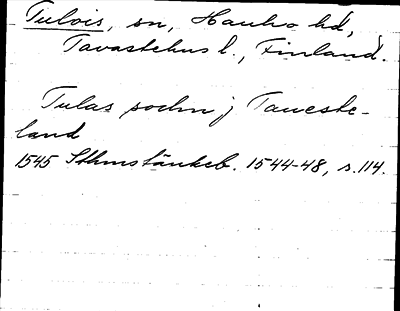 Tulois, sn, Hauho hd,
Tavastehus l., Finland.
Tulas sochn j Taueste-
land
1545 Sthms tänkeb. 1544-48, s. 114.